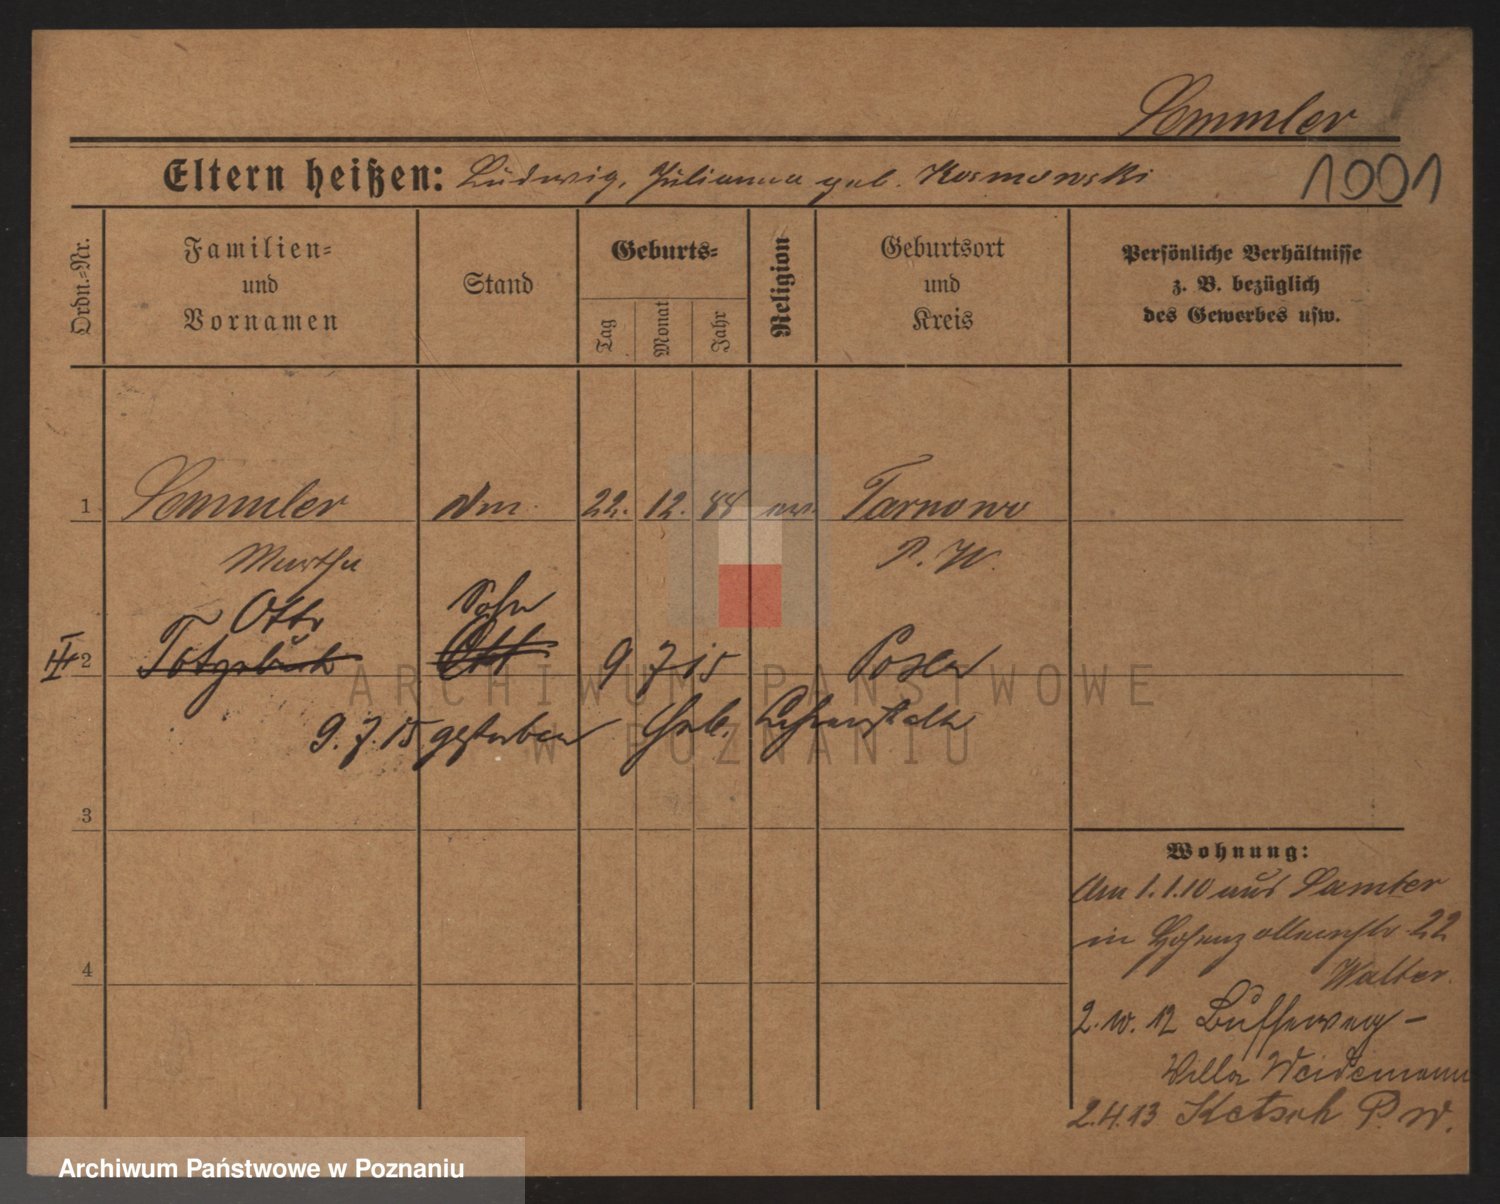 Semmler
Eltern heißen: Ludwig, Julianna geb. Kosmowski
1001
Ordn.=Nr.
Familien=
und
Vornamen
Stand
Geburts=
Tag
Monat
Jahr
Religion
Geburtsort
und
Kreis
Persönliche Verhältnisse
z. B. bezüglich
des Gewerbes usw.
1 Semmler 22. 12. 88 ev. Tarnowo
Martha P. W.
Otto Sohn
III 2 Totgeburt Ott 9 7 15 Posen
9. 7. 15 gestorben Geb. Lehranstalt
3
4
Wohnung:
Am 1.1.10 aus Samter
in Hohenzollernstr. 22
Walter.
2. 10. 12
Villa Weidemann
2.4.13 P. W.
ARCHIWUM PAŃSTWOWE
W POZNANIU
Archiwum Państwowe w Poznaniu